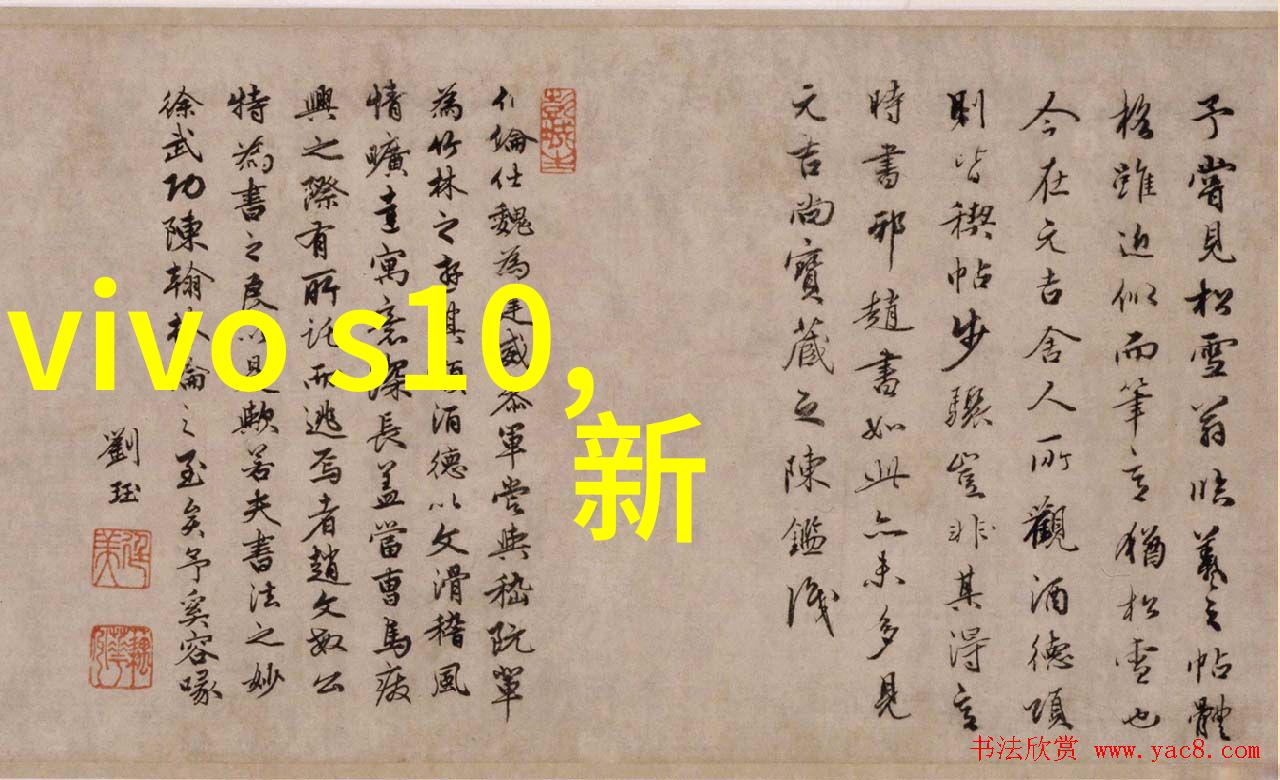 予嘗見松雪翁臨羲之帖體
格雖近似而筆意猶松雪也
今在元吉舍人所觀酒德頌
則皆稧帖步驟豈非其得意
時書邪趙書如此亦未多見
元吉尚寶藏之陳鑑識
倫仕魏為建威參軍嘗與嵇阮輩
為竹林之游其頌酒德以文滑稽風
情曠達寓意深長蓋當曹馬廢
興之際有所託而逃焉者趙文敏公
特為書之良以是歟若夫書法之妙
徐武功陳翰林論之至矣予奚容喙
劉珏
vivo s10,
新
书法欣赏 www.yac8.com